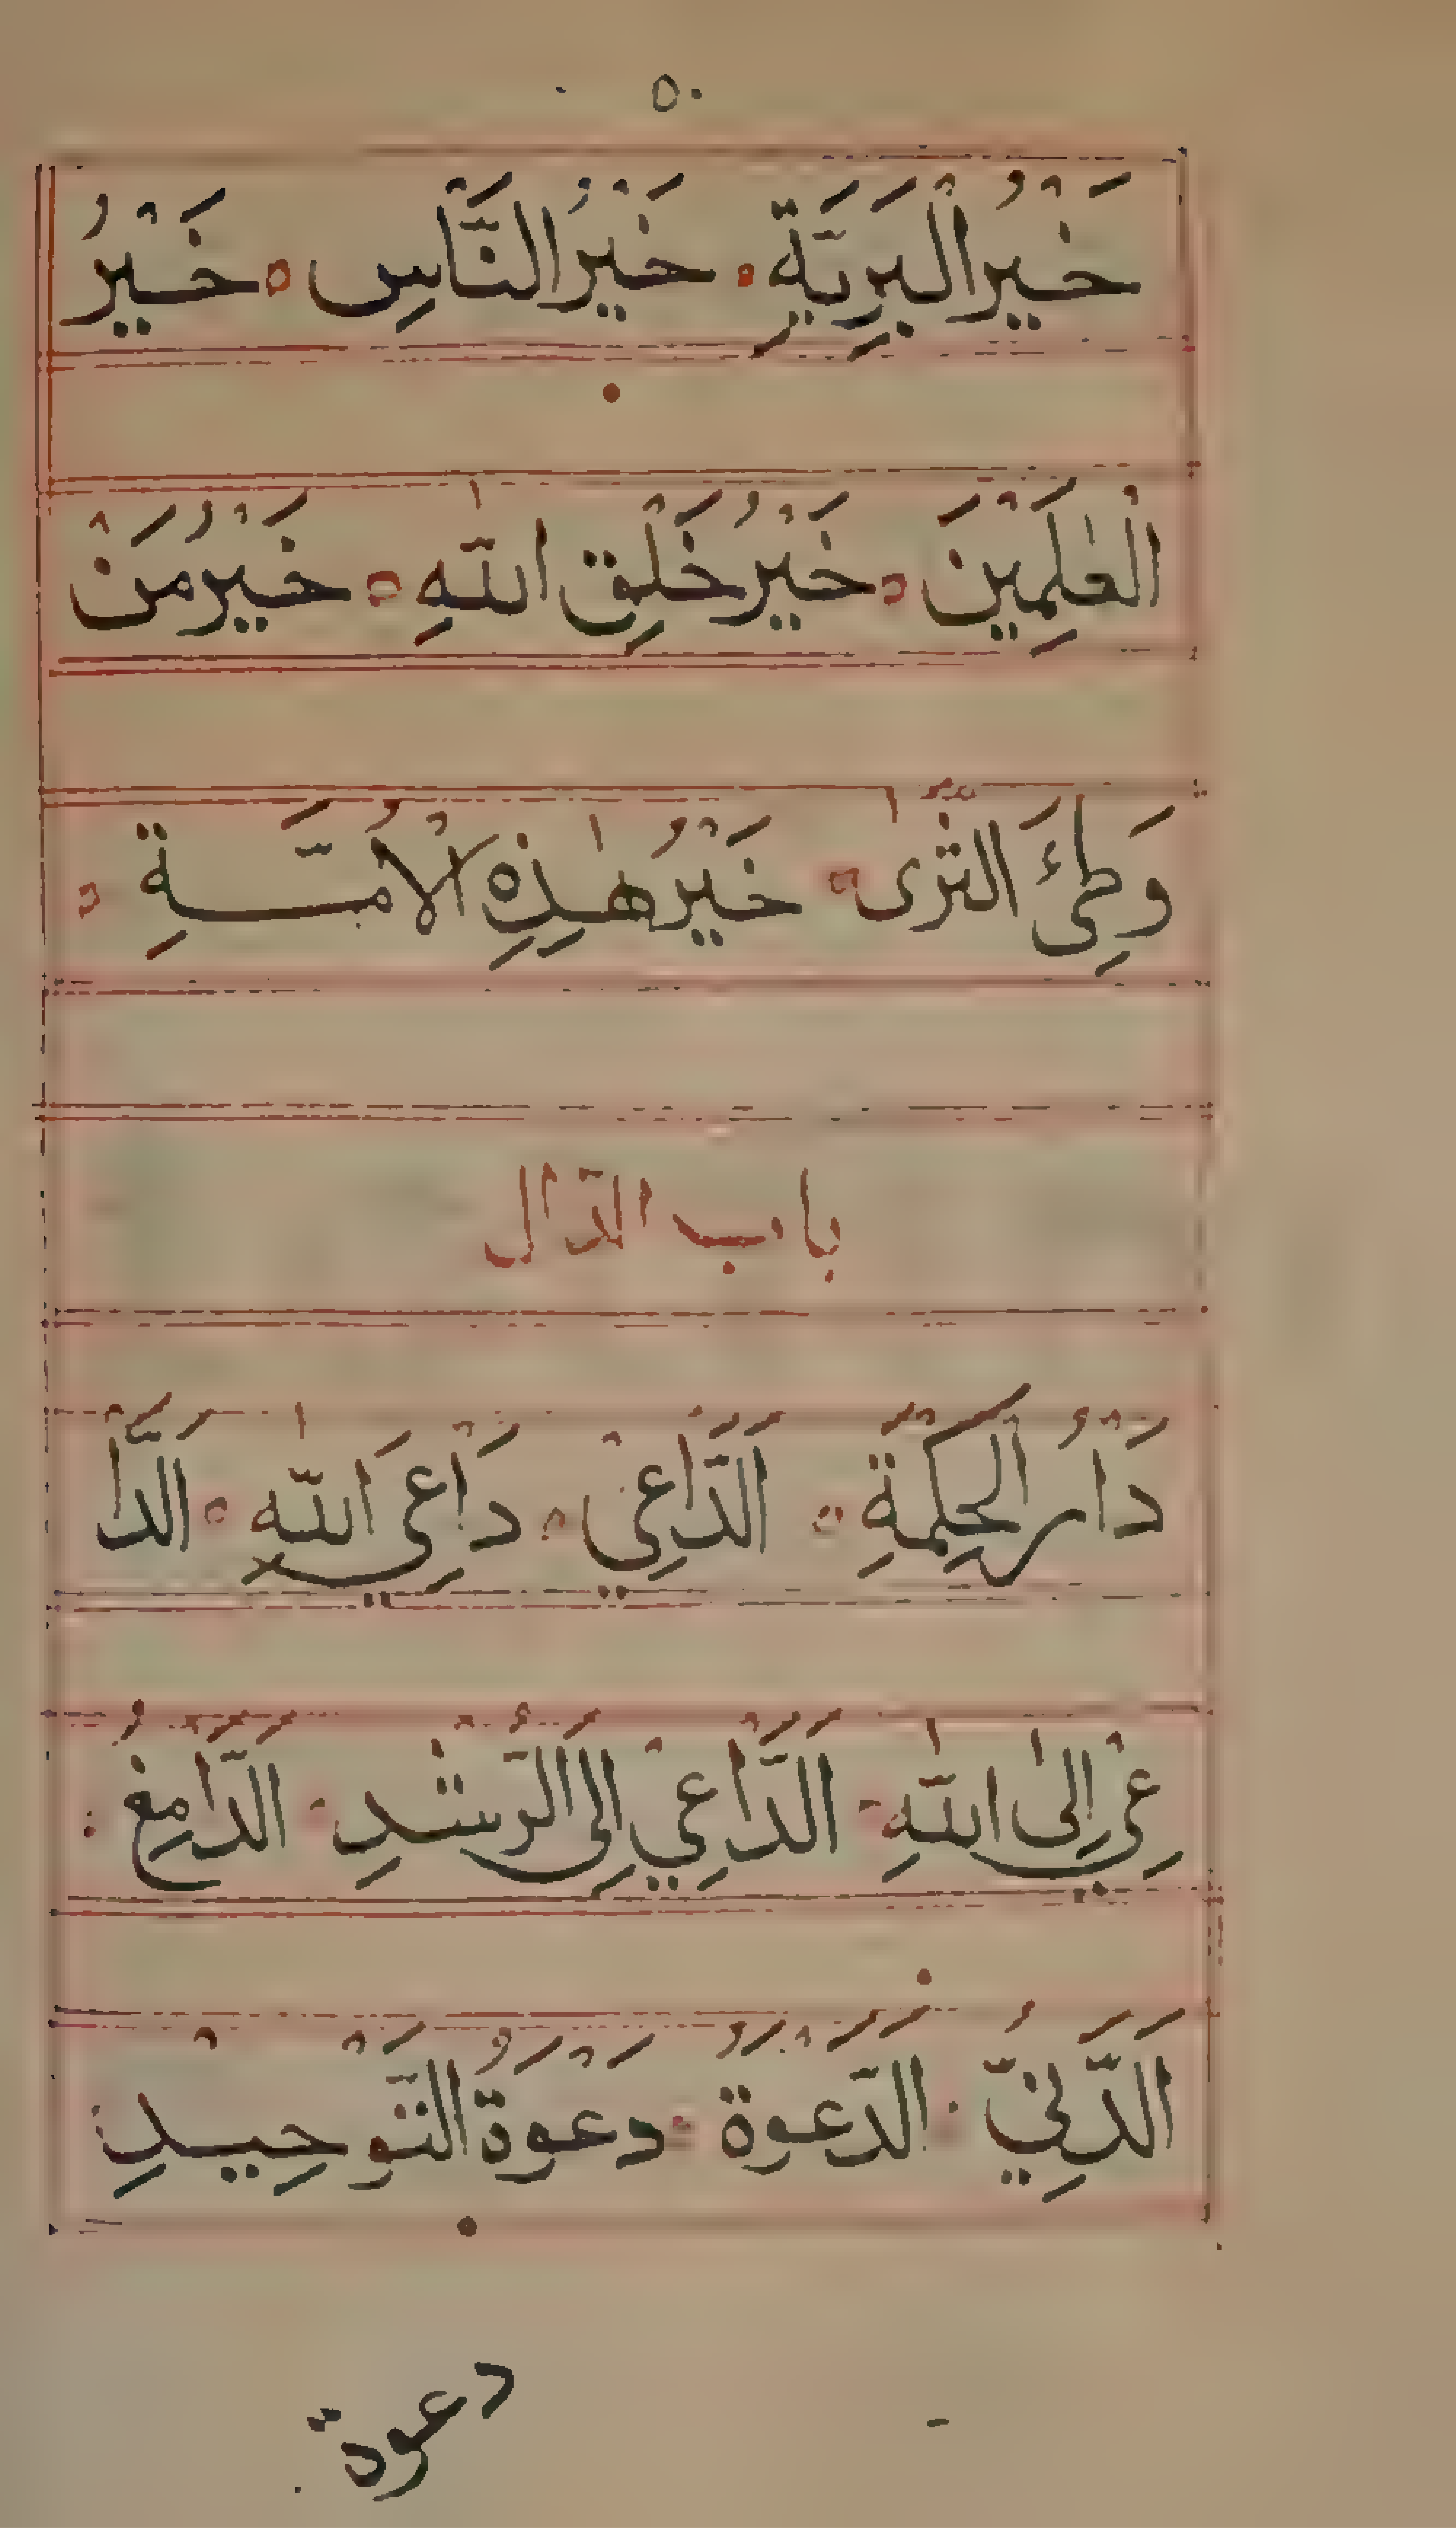 ٥٠
خَيْرُ الْبَرِيَّةِ ۰ خَيْرُ النَّاسِ ۰ خَيْرُ
الْعٰلَمِيْنَ ۰ خَيْرُ خَلْقِ اللّٰهِ ۰ خَيْرُ مَنْ
وَطِئَ الثَّرٰى ۰ خَيْرُ هٰذِهِ الْاُمَّةِ ۰
باب الدّال
دَارُ الْحِكْمَةِ ۰ اَلدَّاعِيْ ۰ دَاعِي اللّٰه ۰ اَلدَّا
عِيْ اِلٰى اللّٰهِ ۰ اَلدَّاعِيْ اِلَى الرُّشْدِ ۰ اَلدَّامِغُ ۰
اَلدَّنِيُّ ۰ اَلدَّعْوَةُ ۰ دَعْوَةُ التَّوْحِيْدِ
دعوة